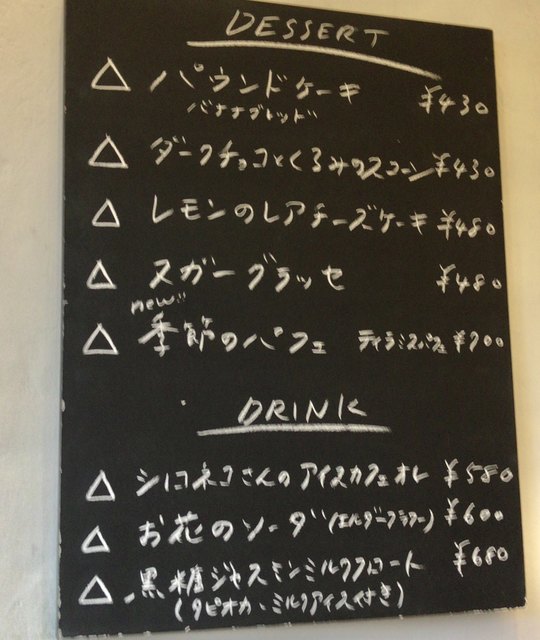 DESSERT
△ パウンドケーキ ¥430
バナナブレッド
△ ダークチョコとくるみのスコーン ¥430
△ レモンのレアチーズケーキ ¥480
△ スガーグラッセ ¥480
new!!
△ 季節のパフェ ティラミスパフェ ¥700
DRINK
△ シロネコさんのアイスカフェオレ ¥580
△ お花のソーダ (エルダーフラワー) ¥600
△ 黒糖ジャスミンミルクフロート ¥680
(タピオカ・ミルクアイス付き)